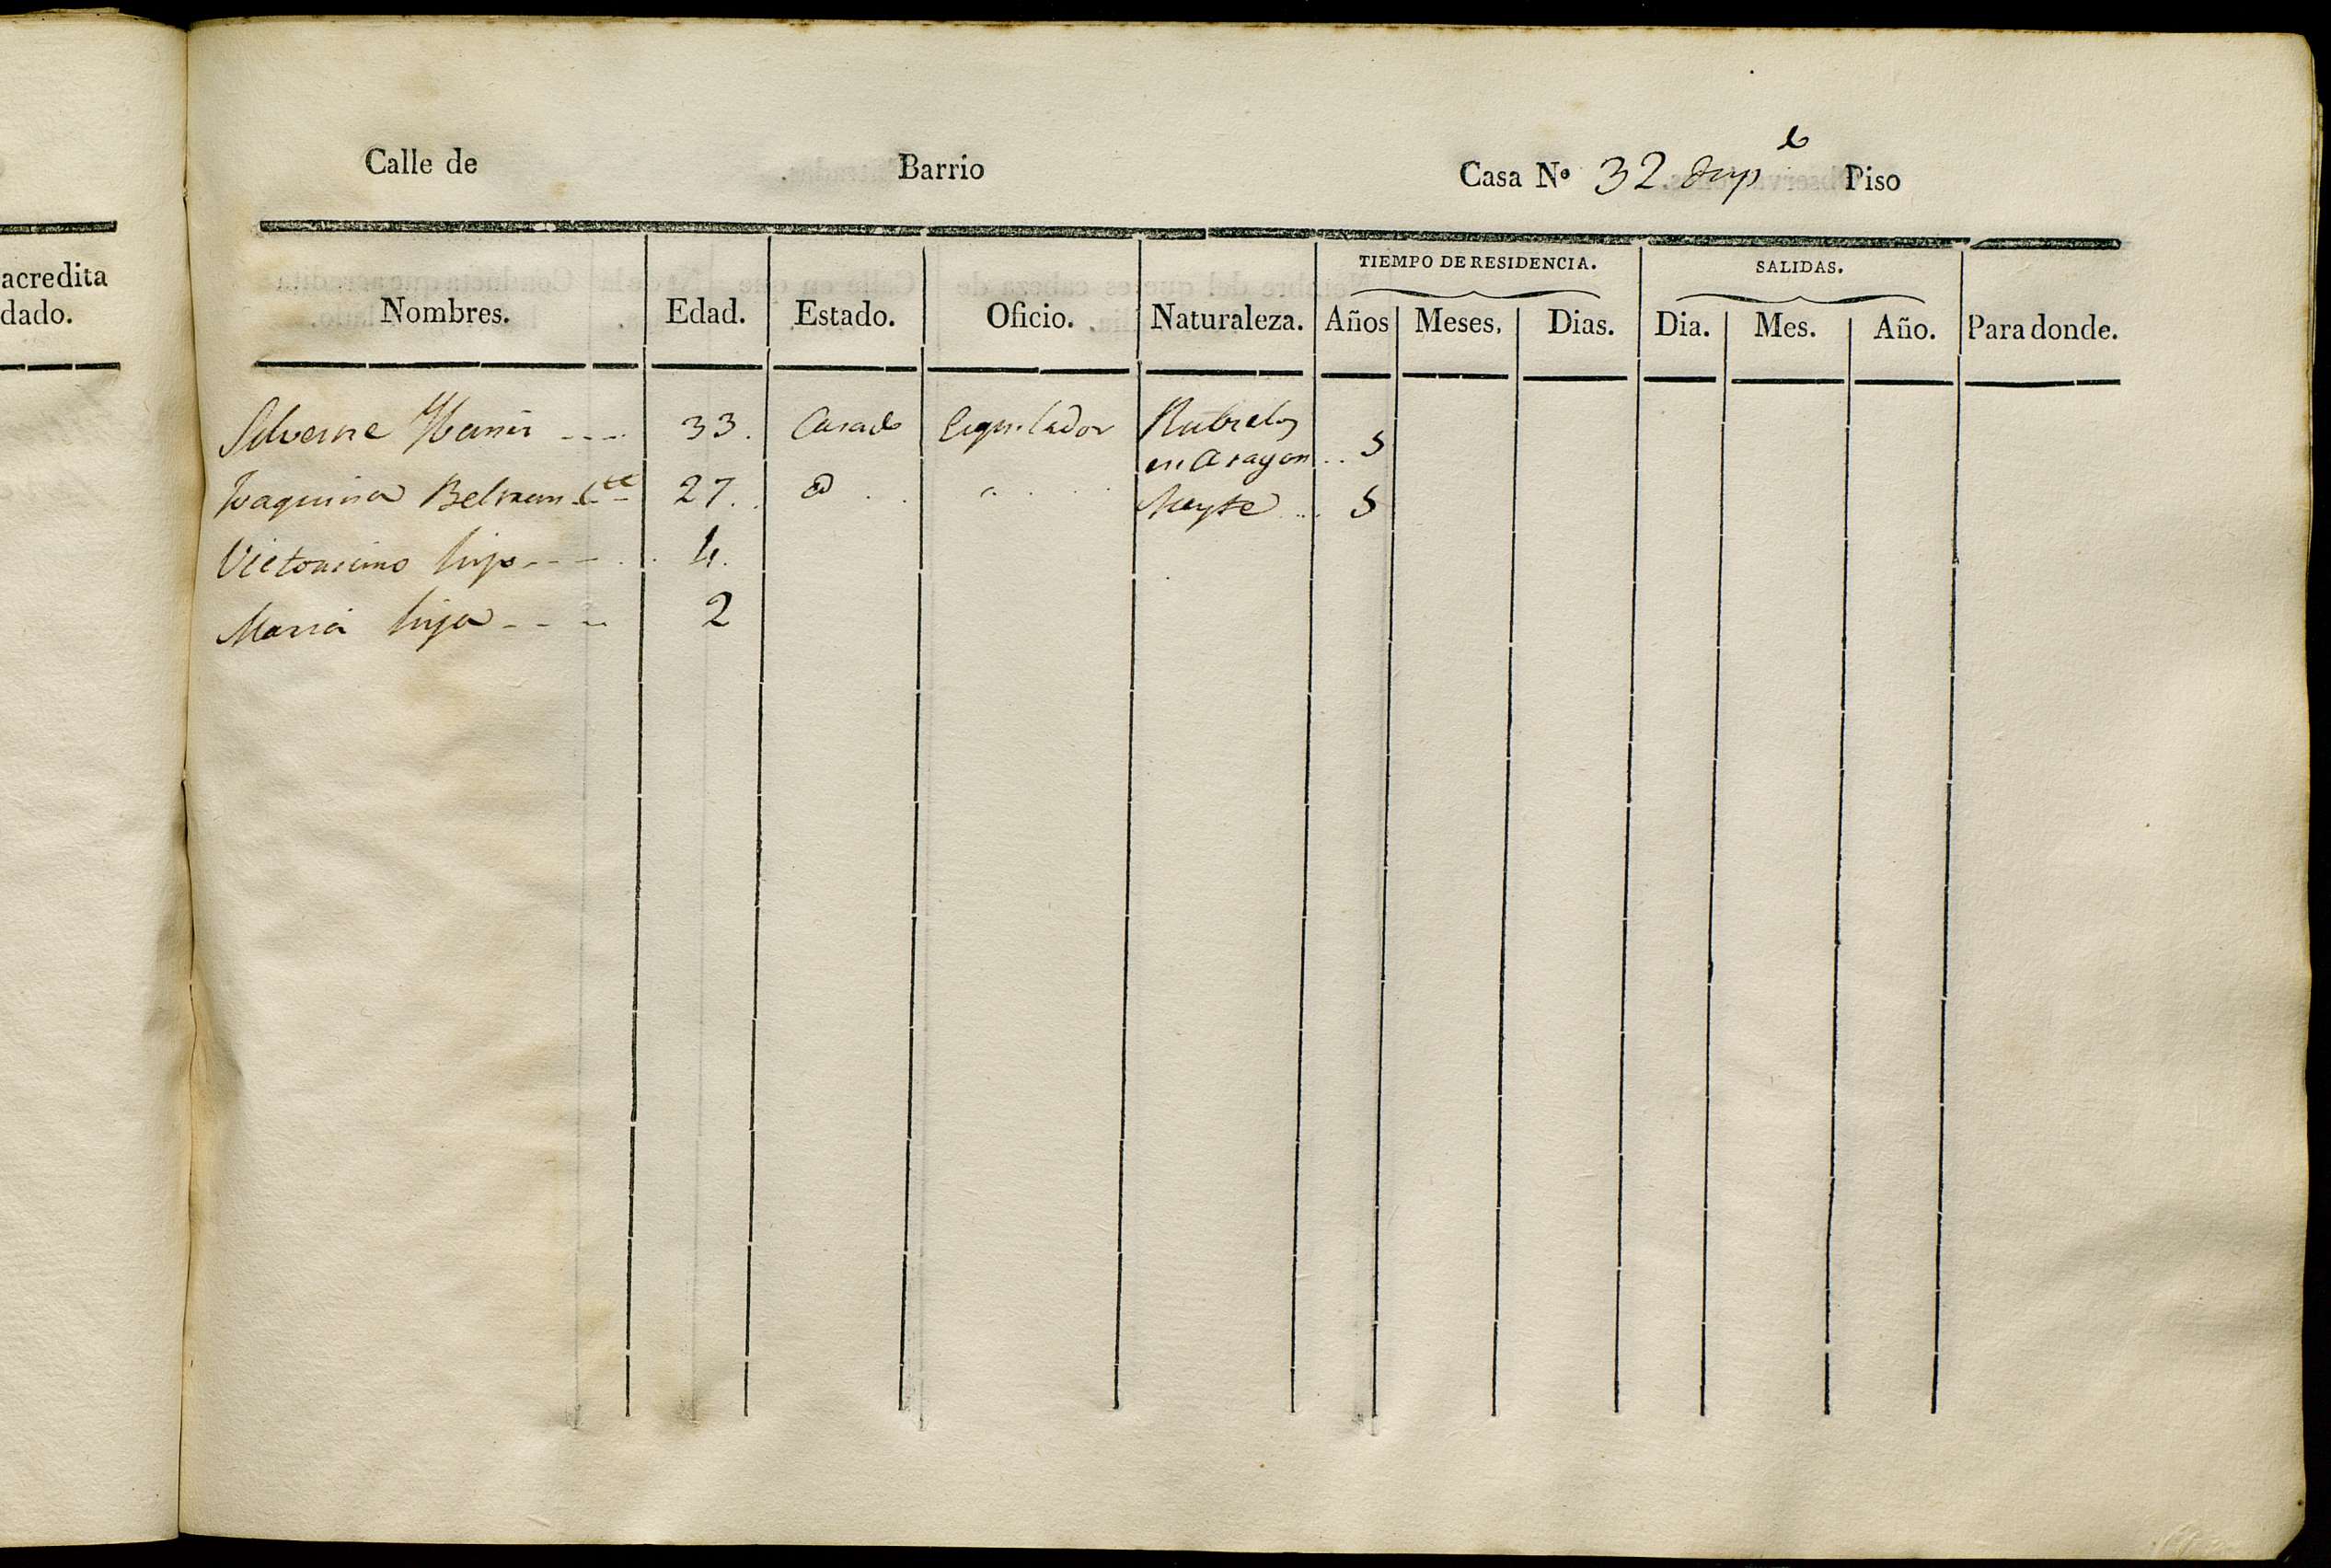 acredita
dado.
Calle de Barrio Casa Nº 32 dup.º Piso
Nombres. Edad. Estado. Oficio. Naturaleza. TIEMPO DE RESIDENCIA. Años Meses. Dias. SALIDAS. Dia. Mes. Año. Para donde.
33. Casado Esquilador Rubielos
en Aragon .. 5
Joaquina Beltran 27. 5
Victoriano hijo 4.
Maria hija 2